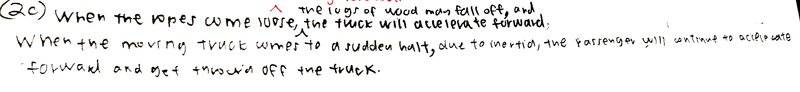 the logs of wood may fall off, and
(2c) When the ropes come loose, the truck will accelerate forward.
When the moving truck comes to a sudden halt, due to inertia, the passenger will continue to accelerate
forward and get thrown off the truck.